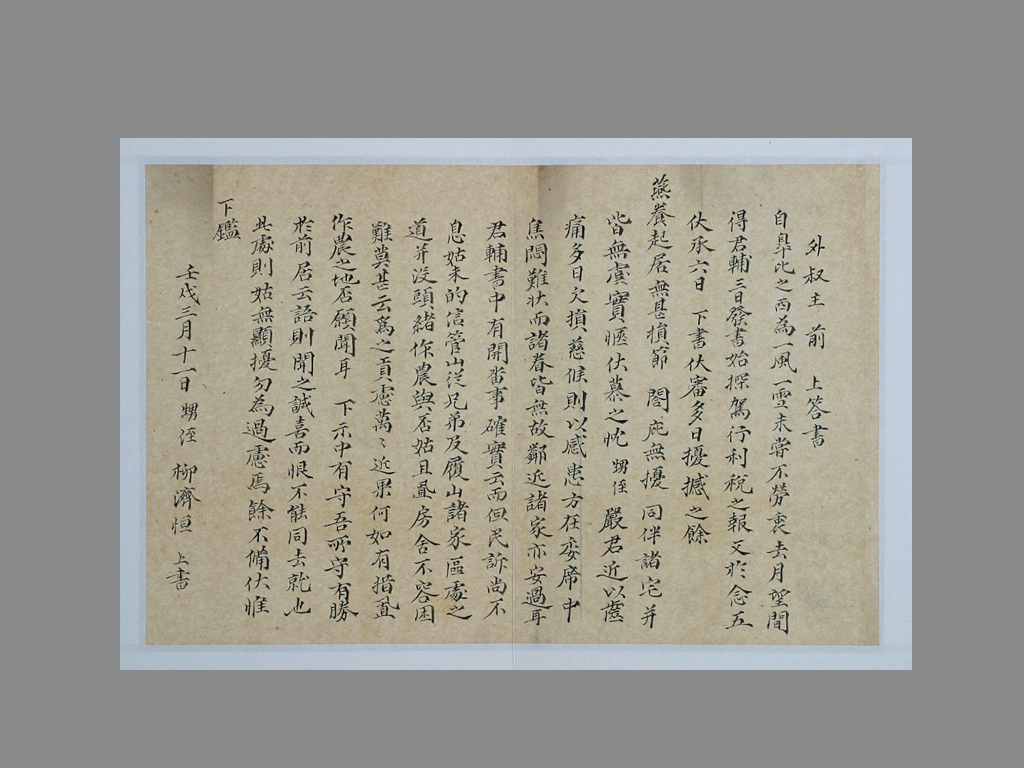 外叔主 前 上答書
自皐比之西為一風一雪未嘗不勞衷去月望間
得君輔三日發書始探駕行利稅之報又於念五
伏承六日 下書伏審多日擾撼之餘
燕養起居無甚損節 閤庇無擾 同伴諸宅并
皆無虞實愜伏慕之忱 甥侄 嚴君近以
痛多日欠損慈候則以感患方在委席中
焦悶難狀而諸眷皆無故鄰近諸家亦安過耳
君輔書中有開畓事確實云而但民訴尚不
息姑未的信管山從兄弟及履山諸家區處之
道并沒頭緒作農與否姑且置房舍不容困
難莫甚云為之貢慮萬〻近果何如有措置
作農之地否願聞耳 下示中有守吾所守有勝
於前居云語則聞之誠喜而恨不能同去就也
此處則姑無顯擾勿為過慮焉餘不備伏惟
下鑑
壬戌三月十一日 甥侄 柳濟恒 上書